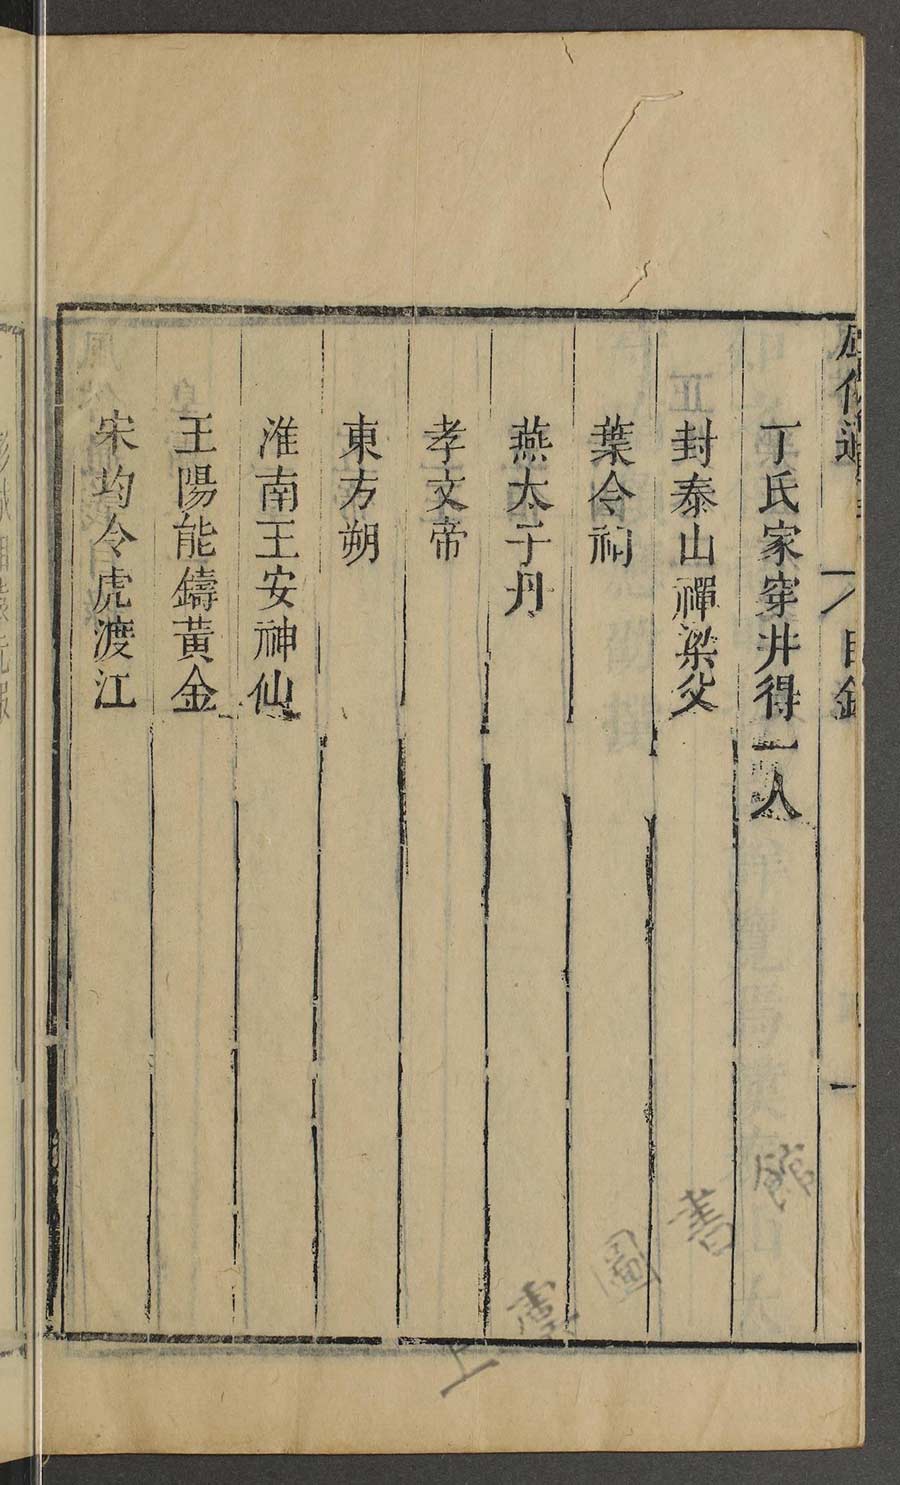 丁氏家穿井得一人
封泰山禪梁父
葉令祠
燕太子丹
孝文帝
東方朔
淮南王安神仙
王陽能鑄黃金
宋均令虎渡江
上虞圖書館